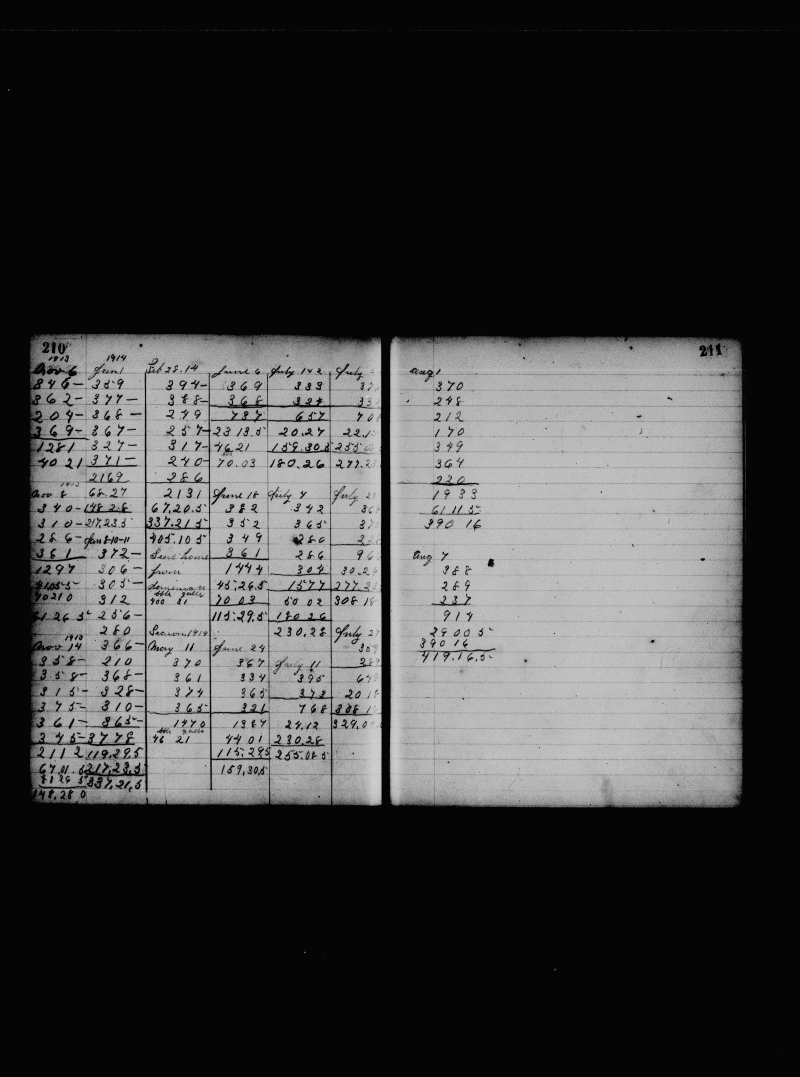 210
1913
Nov 6
346-
362-
204-
369-
1281
40 21
1913
Nov 8
340-
310-
286-
361
1297
41055
40210
81 26 5
1913
Nov 14
358-
358-
315-
375-
361-
345-
2112
67,01.5
81 26 5
148,28 0
1914
Jan 1
359
377-
368-
367-
327-
371-
2169
68.27
148 28
217,23.5
Jan 8-10-11
372-
306-
305-
312
256-
280
366-
210
368-
328-
310-
365-
3778
119.295
217,23,5
337,21,5
Feb 28.14
394-
388-
249
257-
317-
240-
286
2131
67,20.5
337.215
405.105
Sent home
from
Dominion
bbls galls
400 21
Season 1914
May 11
370
361
374
365
1470
bbls galls
46 21
June 6
369
368
737
23 13.5
46 21
70.03
June 18
382
352
349
361
45,26.5
70 03
115.29,5
June 24
367
334
365
321
1387
44 01
115.295
159,30,5
July 1 & 2
333
324
657
20.27
159.305
180.26
July 4
342
365
280
286
304
1577
50 02
180 26
230,28
July 11
395
373
768
24.12
230,28
255.085
July
277.23
308 18
July 27
20 18
308 18
211
Aug 1
370
248
212
170
349
364
220
1933
61 11 5
390 16
Aug 7
388
289
237
914
29 00 5
390 16
419.16,5